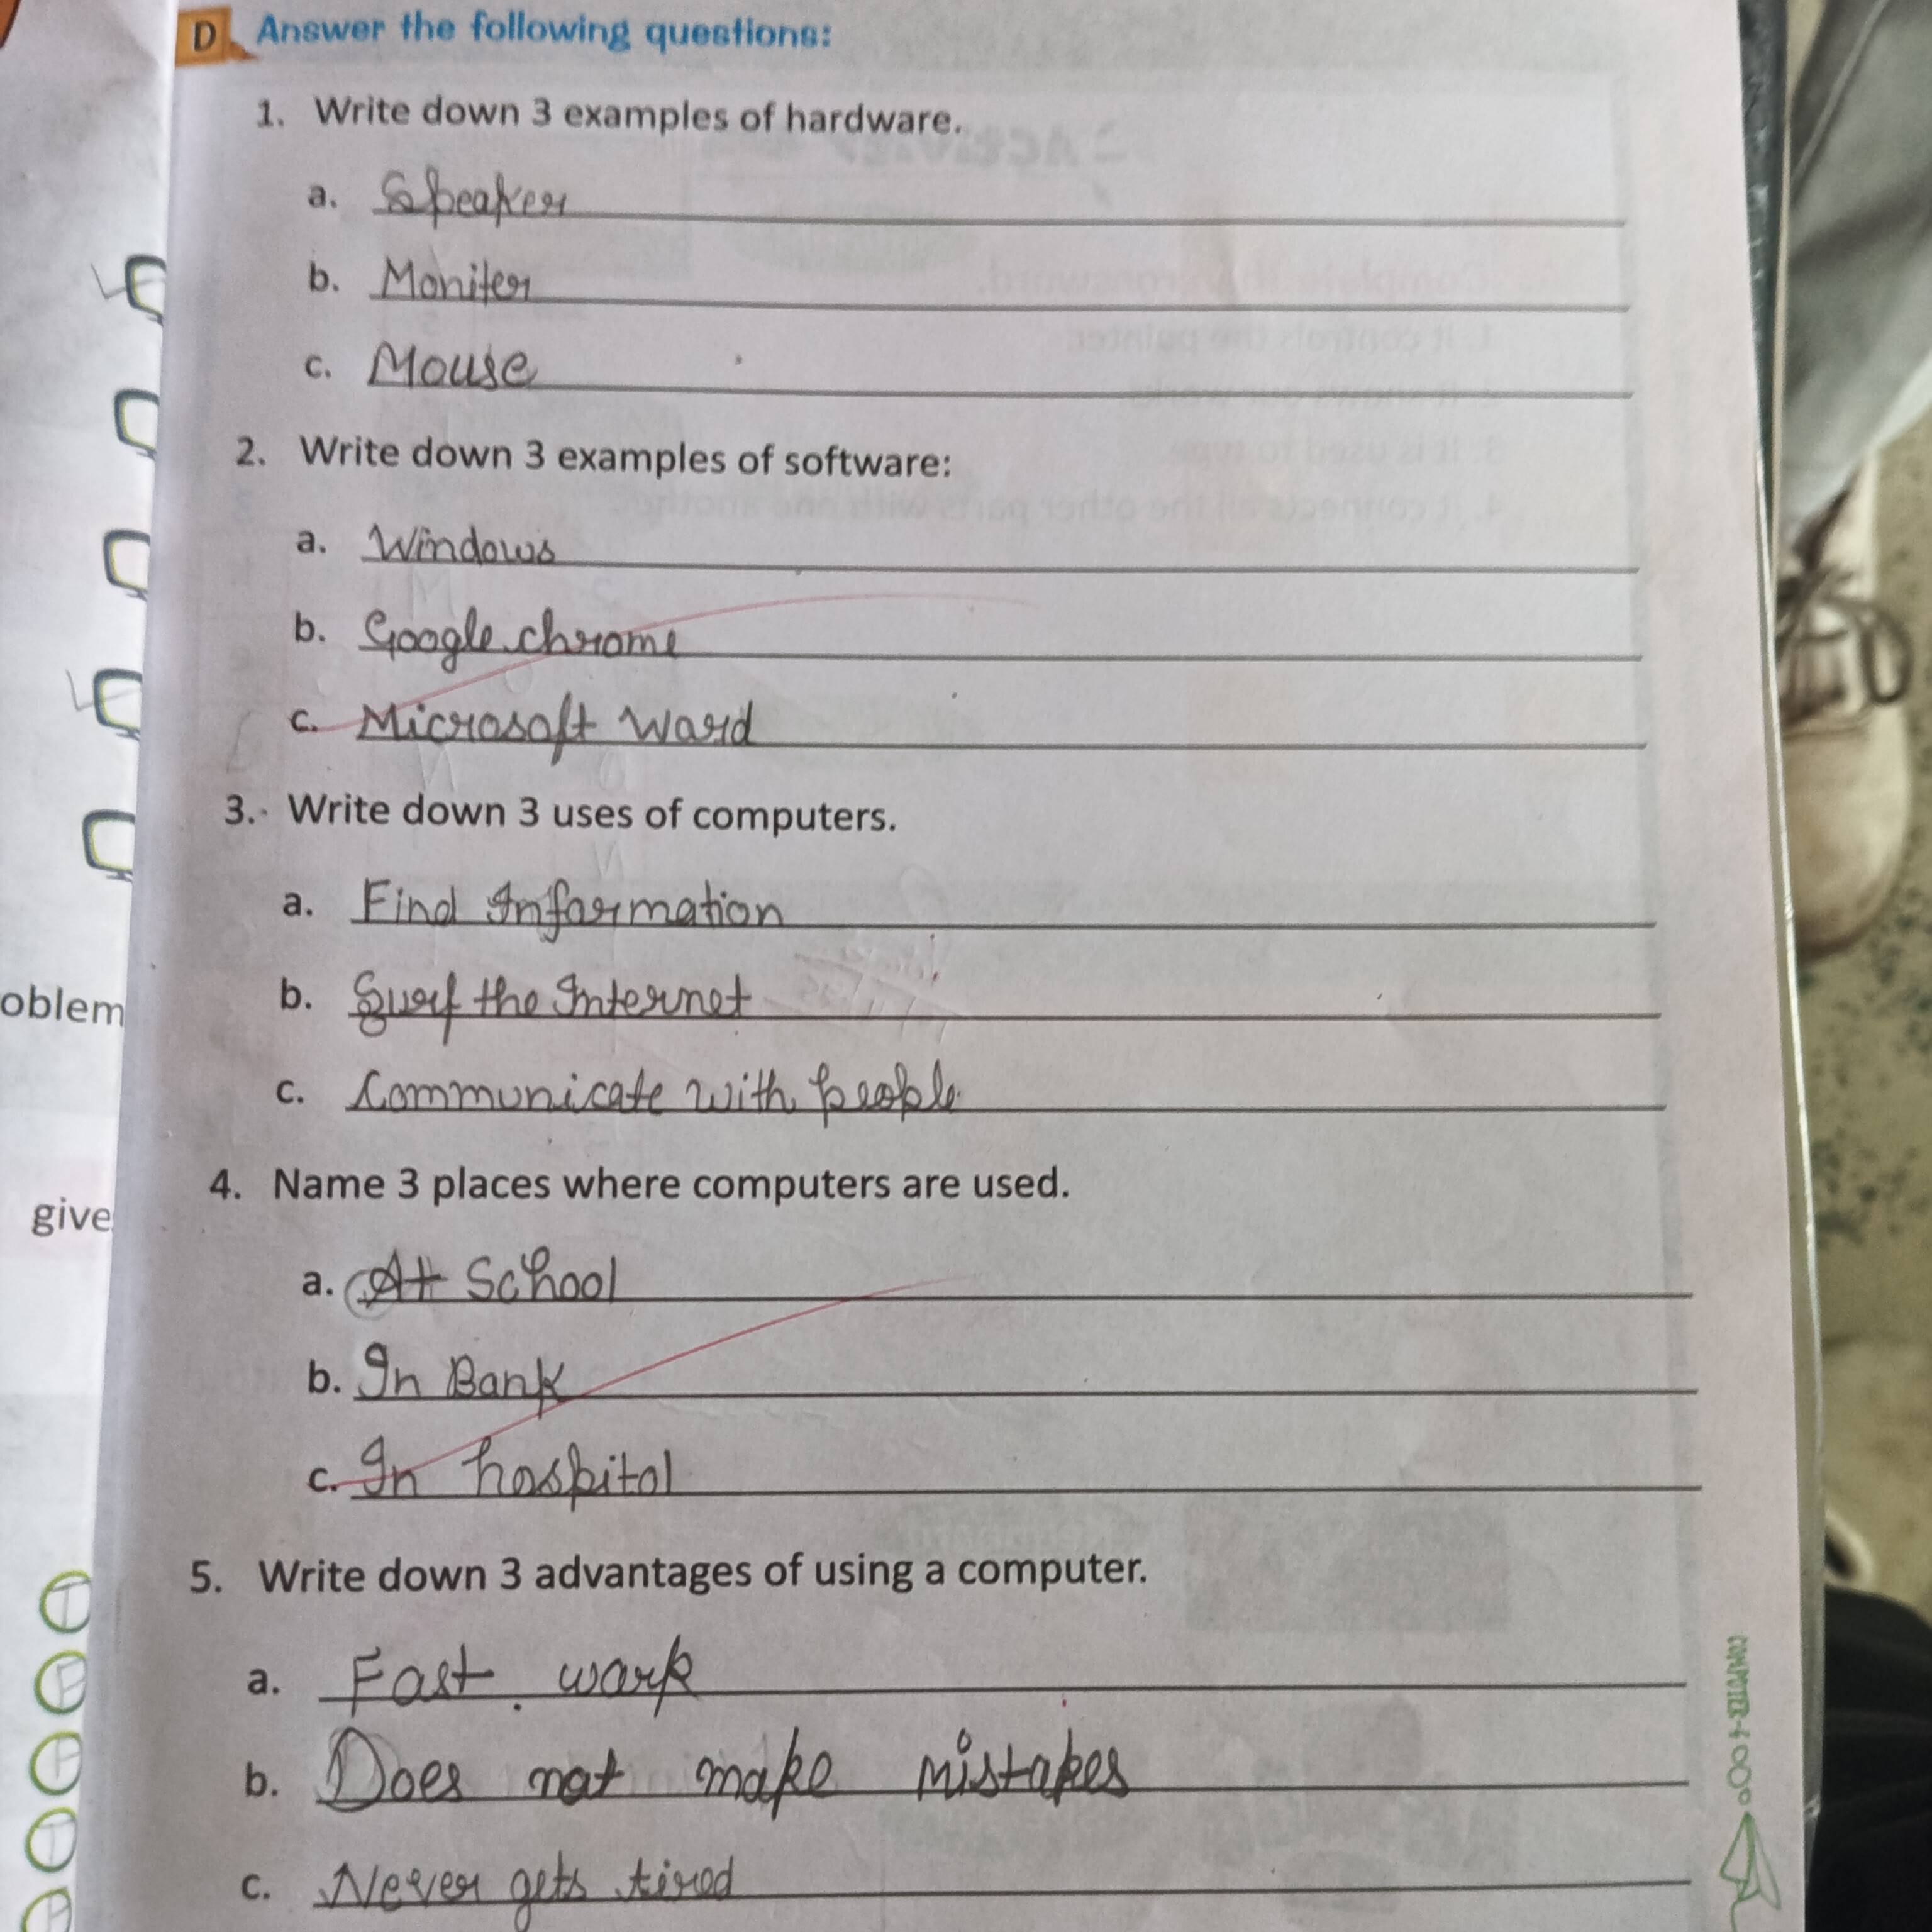 D Answer the following questions:
1. Write down 3 examples of hardware.
a. Speaker
b. Moniter
c. Mouse
2. Write down 3 examples of software:
a. Windows
b. Google chrome
c. Microsoft Word
3. Write down 3 uses of computers.
a. Find Information
oblem
b. Surf the Internet
c. Communicate with people
4. Name 3 places where computers are used.
give
a. At School
b. In Bank
c. In hospital
5. Write down 3 advantages of using a computer.
T
a. Fast work
F
b. Does not make mistakes
F
T
c. Never gets tired
F
COMPUTER-4